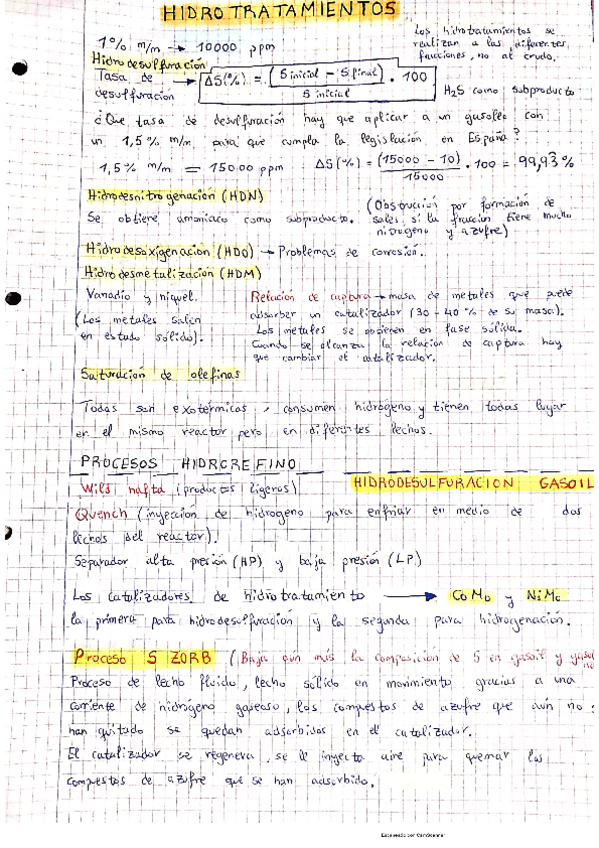 HIDROTRATAMIENTOS
1% m/m → 10000 ppm
Los hidrotratamientos se
realizan a las diferentes
fracciones, no al crudo.
Hidrodesulfuración
Tasa de desulfuración → ΔS(%) = (S inicial - S final) / S inicial · 100
H₂S como subproducto
¿Que tasa de desulfuración hay que aplicar a un gasoleo con
un 1,5% m/m para que cumpla la legislación en España?
1,5% m/m = 15000 ppm ΔS(%) = (15000 - 10) / 15000 · 100 = 99,93%
Hidrodesnitrogenación (HDN)
Se obtiene amoniaco como subproducto.
(Obstrucción por formación de
sales, si la fracción tiene mucho
nitrogeno y azufre)
Hidrodesoxigenación (HDO) → Problemas de corrosión.
Hidrodesmetalización (HDM)
Vanadio y niquel.
(Los metales salen
en estado sólido).
Relación de captura → masa de metales que puede
adsorber un catalizador (30-40% de su masa).
Los metales se obtienen en fase sólida.
Cuando se alcanza la relación de captura hay
que cambiar el catalizador.
Saturación de olefinas
Todas son exotérmicas, consumen hidrógeno y tienen todas lugar
en el mismo reactor pero en diferentes lechos.
PROCESOS HIDROREFINO
HIDRODESULFURACION GASOIL
Wils nafta (productos ligeros)
Quench (inyección de hidrogeno para enfriar en medio de dos
lechos del reactor).
Separador alta presión (HP) y baja presión (LP)
Los catalizadores de hidrotratamiento → CoMo y NiMo
la primera para hidrodesulfuración y la segunda para hidrogenación.
Proceso S ZORB (Baja aún más la composición de S en gasoil y
Proceso de lecho fluido, lecho sólido en movimiento gracias a una
corriente de hidrógeno gaseoso, los compuestos de azufre que aún no
han quitado se quedan adsorbidos en el catalizador.
El catalizador se regenera, se le inyecta aire para quemar los
compuestos de azufre que se han adsorbido.
Escaneado por CamScanner